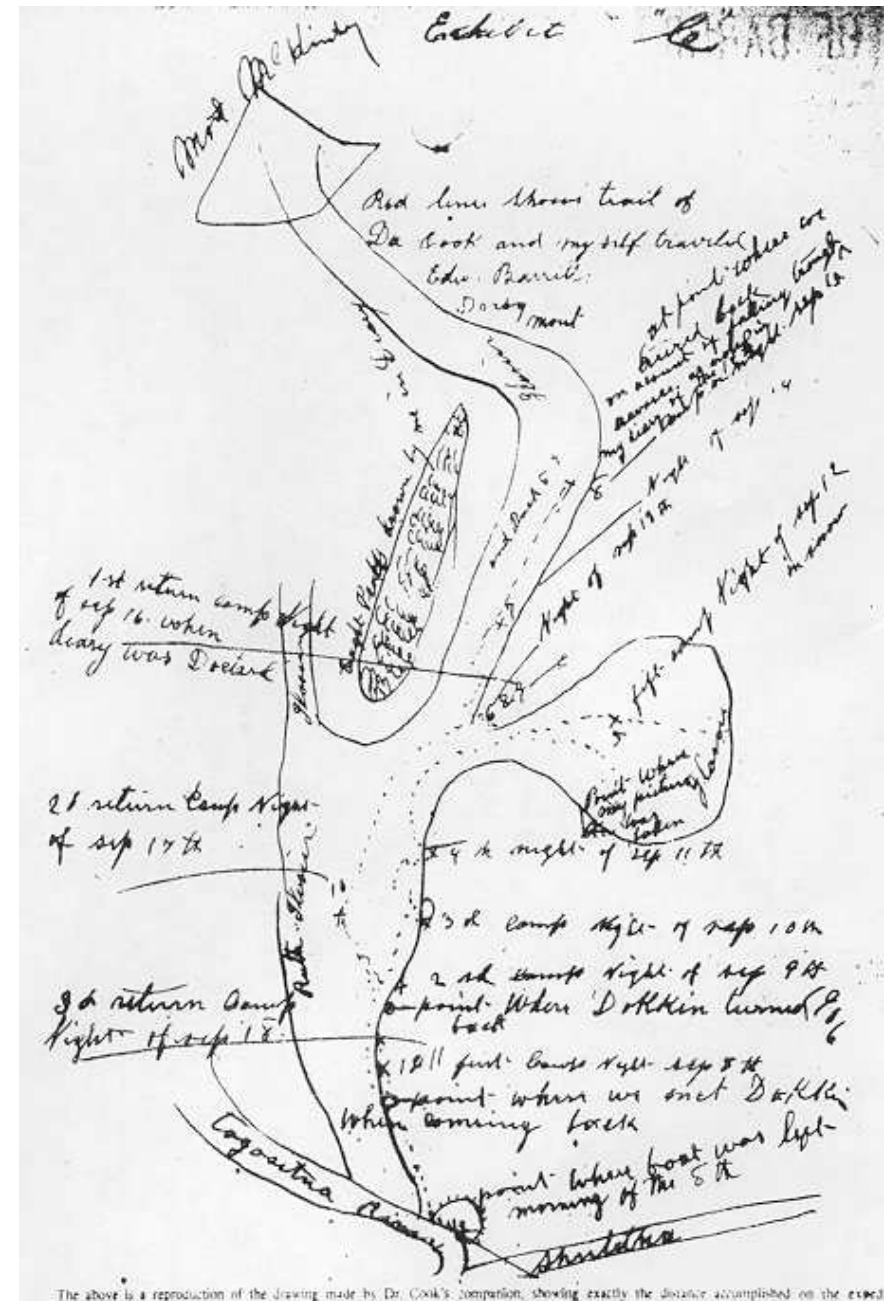 Exhibit "C"
Mont McKinly
Red lines Shows trail of
Da Cook and my self traveled
Edw. Barrill.
Darby mont
at point where we
turned back
on account of
my diary
Night of sep 14
Night of sep 13th
fift camp Night of sep 12
in snow
and Back
Eight Peaks drawn by me in Diary
Glacier
1st return camp Night
of sep 16. when
diary was Doctard
Point Where
my picture
was
taken
2d return Camp Night
of sep 17th
4th night of sep 11th
3d camp Night of sep 10th
2nd camp Night of sep 9th
point Where Dokkin turned
back
Ruth Glacier
3d return Camp
Night of sep 18
1st first Camp Night sep 8th
point where we met Dokkin
When comming back
point Where boat was left
morning of the 8th
Togositna River
The above is a reproduction of the drawing made by Dr. Cook's companion, showing exactly the distance accomplished on the exped